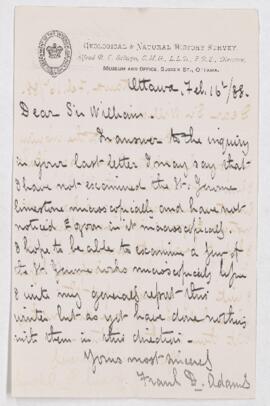 GEOLOGICAL & NATURAL HISTORY SURVEY
Alfred R. C. Selwyn, C.M.G., L.L.D., F.R.S., Director,
MUSEUM AND OFFICE, SUSSEX ST., OTTAWA.
Ottawa, Feb. 16th/88.
Dear Sir William
In answer to the inquiry
in your last letter I may say that
I have not examined the St. Jerome
limestone microscopically and have not
noticed Eozoon in it macroscopically.
I hope to be able to examine a few of
the St. Jerome rocks microscopically before
I write my general report this
winter but as yet have done nothing
with them in this direction.
Yours most sincerely
Frank D. Adams